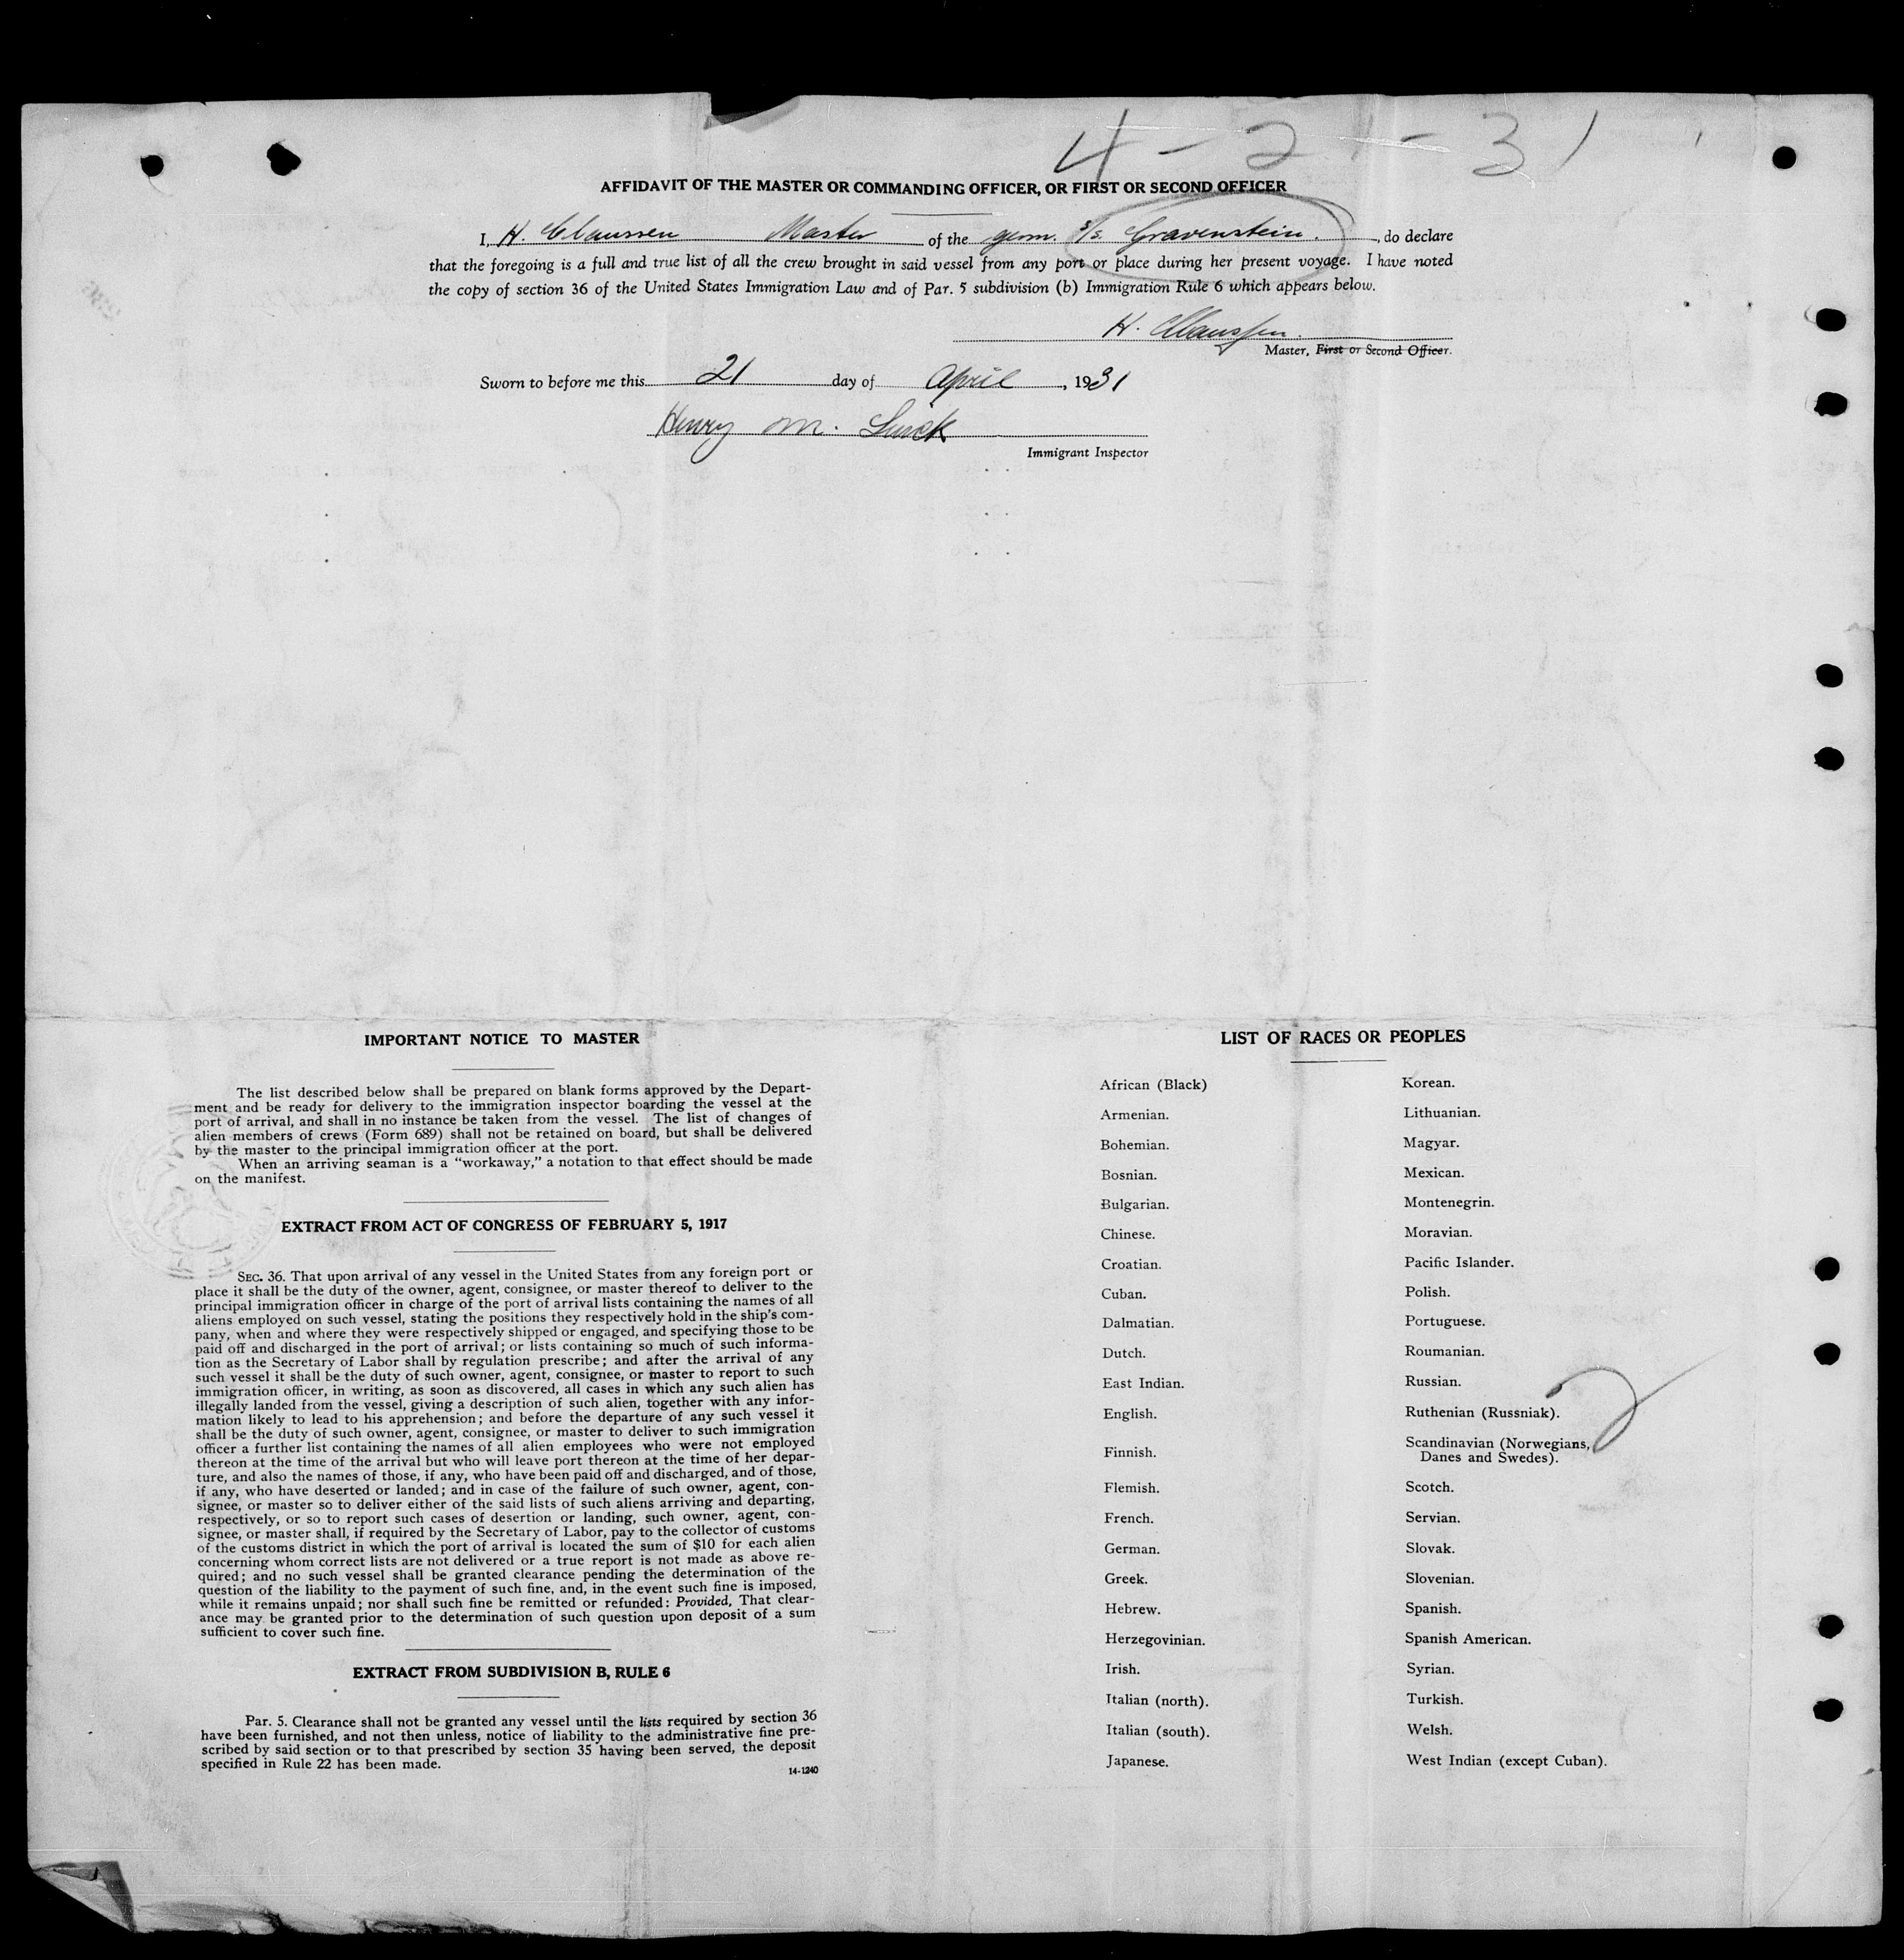 4-21-31
AFFIDAVIT OF THE MASTER OR COMMANDING OFFICER, OR FIRST OR SECOND OFFICER
I, H. Claussen Master of the germ. S/S. Gravenstein. , do declare
that the foregoing is a full and true list of all the crew brought in said vessel from any port or place during her present voyage. I have noted
the copy of section 36 of the United States Immigration Law and of Par. 5 subdivision (b) Immigration Rule 6 which appears below.
H. Claussen.
Master, First or Second Officer.
Sworn to before me this 21 day of April , 1931
Henry M.
Immigrant Inspector
IMPORTANT NOTICE TO MASTER
The list described below shall be prepared on blank forms approved by the Depart-
ment and be ready for delivery to the immigration inspector boarding the vessel at the
port of arrival, and shall in no instance be taken from the vessel. The list of changes of
alien members of crews (Form 689) shall not be retained on board, but shall be delivered
by the master to the principal immigration officer at the port.
When an arriving seaman is a “workaway,” a notation to that effect should be made
on the manifest.
EXTRACT FROM ACT OF CONGRESS OF FEBRUARY 5, 1917
SEC. 36. That upon arrival of any vessel in the United States from any foreign port or
place it shall be the duty of the owner, agent, consignee, or master thereof to deliver to the
principal immigration officer in charge of the port of arrival lists containing the names of all
aliens employed on such vessel, stating the positions they respectively hold in the ship’s com-
pany, when and where they were respectively shipped or engaged, and specifying those to be
paid off and discharged in the port of arrival; or lists containing so much of such informa-
tion as the Secretary of Labor shall by regulation prescribe; and after the arrival of any
such vessel it shall be the duty of such owner, agent, consignee, or master to report to such
immigration officer, in writing, as soon as discovered, all cases in which any such alien has
illegally landed from the vessel, giving a description of such alien, together with any infor-
mation likely to lead to his apprehension; and before the departure of any such vessel it
shall be the duty of such owner, agent, consignee, or master to deliver to such immigration
officer a further list containing the names of all alien employees who were not employed
thereon at the time of the arrival but who will leave port thereon at the time of her depar-
ture, and also the names of those, if any, who have been paid off and discharged, and of those,
if any, who have deserted or landed; and in case of the failure of such owner, agent, con-
signee, or master so to deliver either of the said lists of such aliens arriving and departing,
respectively, or so to report such cases of desertion or landing, such owner, agent, con-
signee, or master shall, if required by the Secretary of Labor, pay to the collector of customs
of the customs district in which the port of arrival is located the sum of $10 for each alien
concerning whom correct lists are not delivered or a true report is not made as above re-
quired; and no such vessel shall be granted clearance pending the determination of the
question of the liability to the payment of such fine, and, in the event such fine is imposed,
while it remains unpaid; nor shall such fine be remitted or refunded: Provided, That clear-
ance may be granted prior to the determination of such question upon deposit of a sum
sufficient to cover such fine.
EXTRACT FROM SUBDIVISION B, RULE 6
Par. 5. Clearance shall not be granted any vessel until the lists required by section 36
have been furnished, and not then unless, notice of liability to the administrative fine pre-
scribed by said section or to that prescribed by section 35 having been served, the deposit
specified in Rule 22 has been made.
14-1240
LIST OF RACES OR PEOPLES
African (Black)
Armenian.
Bohemian.
Bosnian.
Bulgarian.
Chinese.
Croatian.
Cuban.
Dalmatian.
Dutch.
East Indian.
English.
Finnish.
Flemish.
French.
German.
Greek.
Hebrew.
Herzegovinian.
Irish.
Italian (north).
Italian (south).
Japanese.
Korean.
Lithuanian.
Magyar.
Mexican.
Montenegrin.
Moravian.
Pacific Islander.
Polish.
Portuguese.
Roumanian.
Russian.
Ruthenian (Russniak).
Scandinavian (Norwegians,
Danes and Swedes).
Scotch.
Servian.
Slovak.
Slovenian.
Spanish.
Spanish American.
Syrian.
Turkish.
Welsh.
West Indian (except Cuban).
2